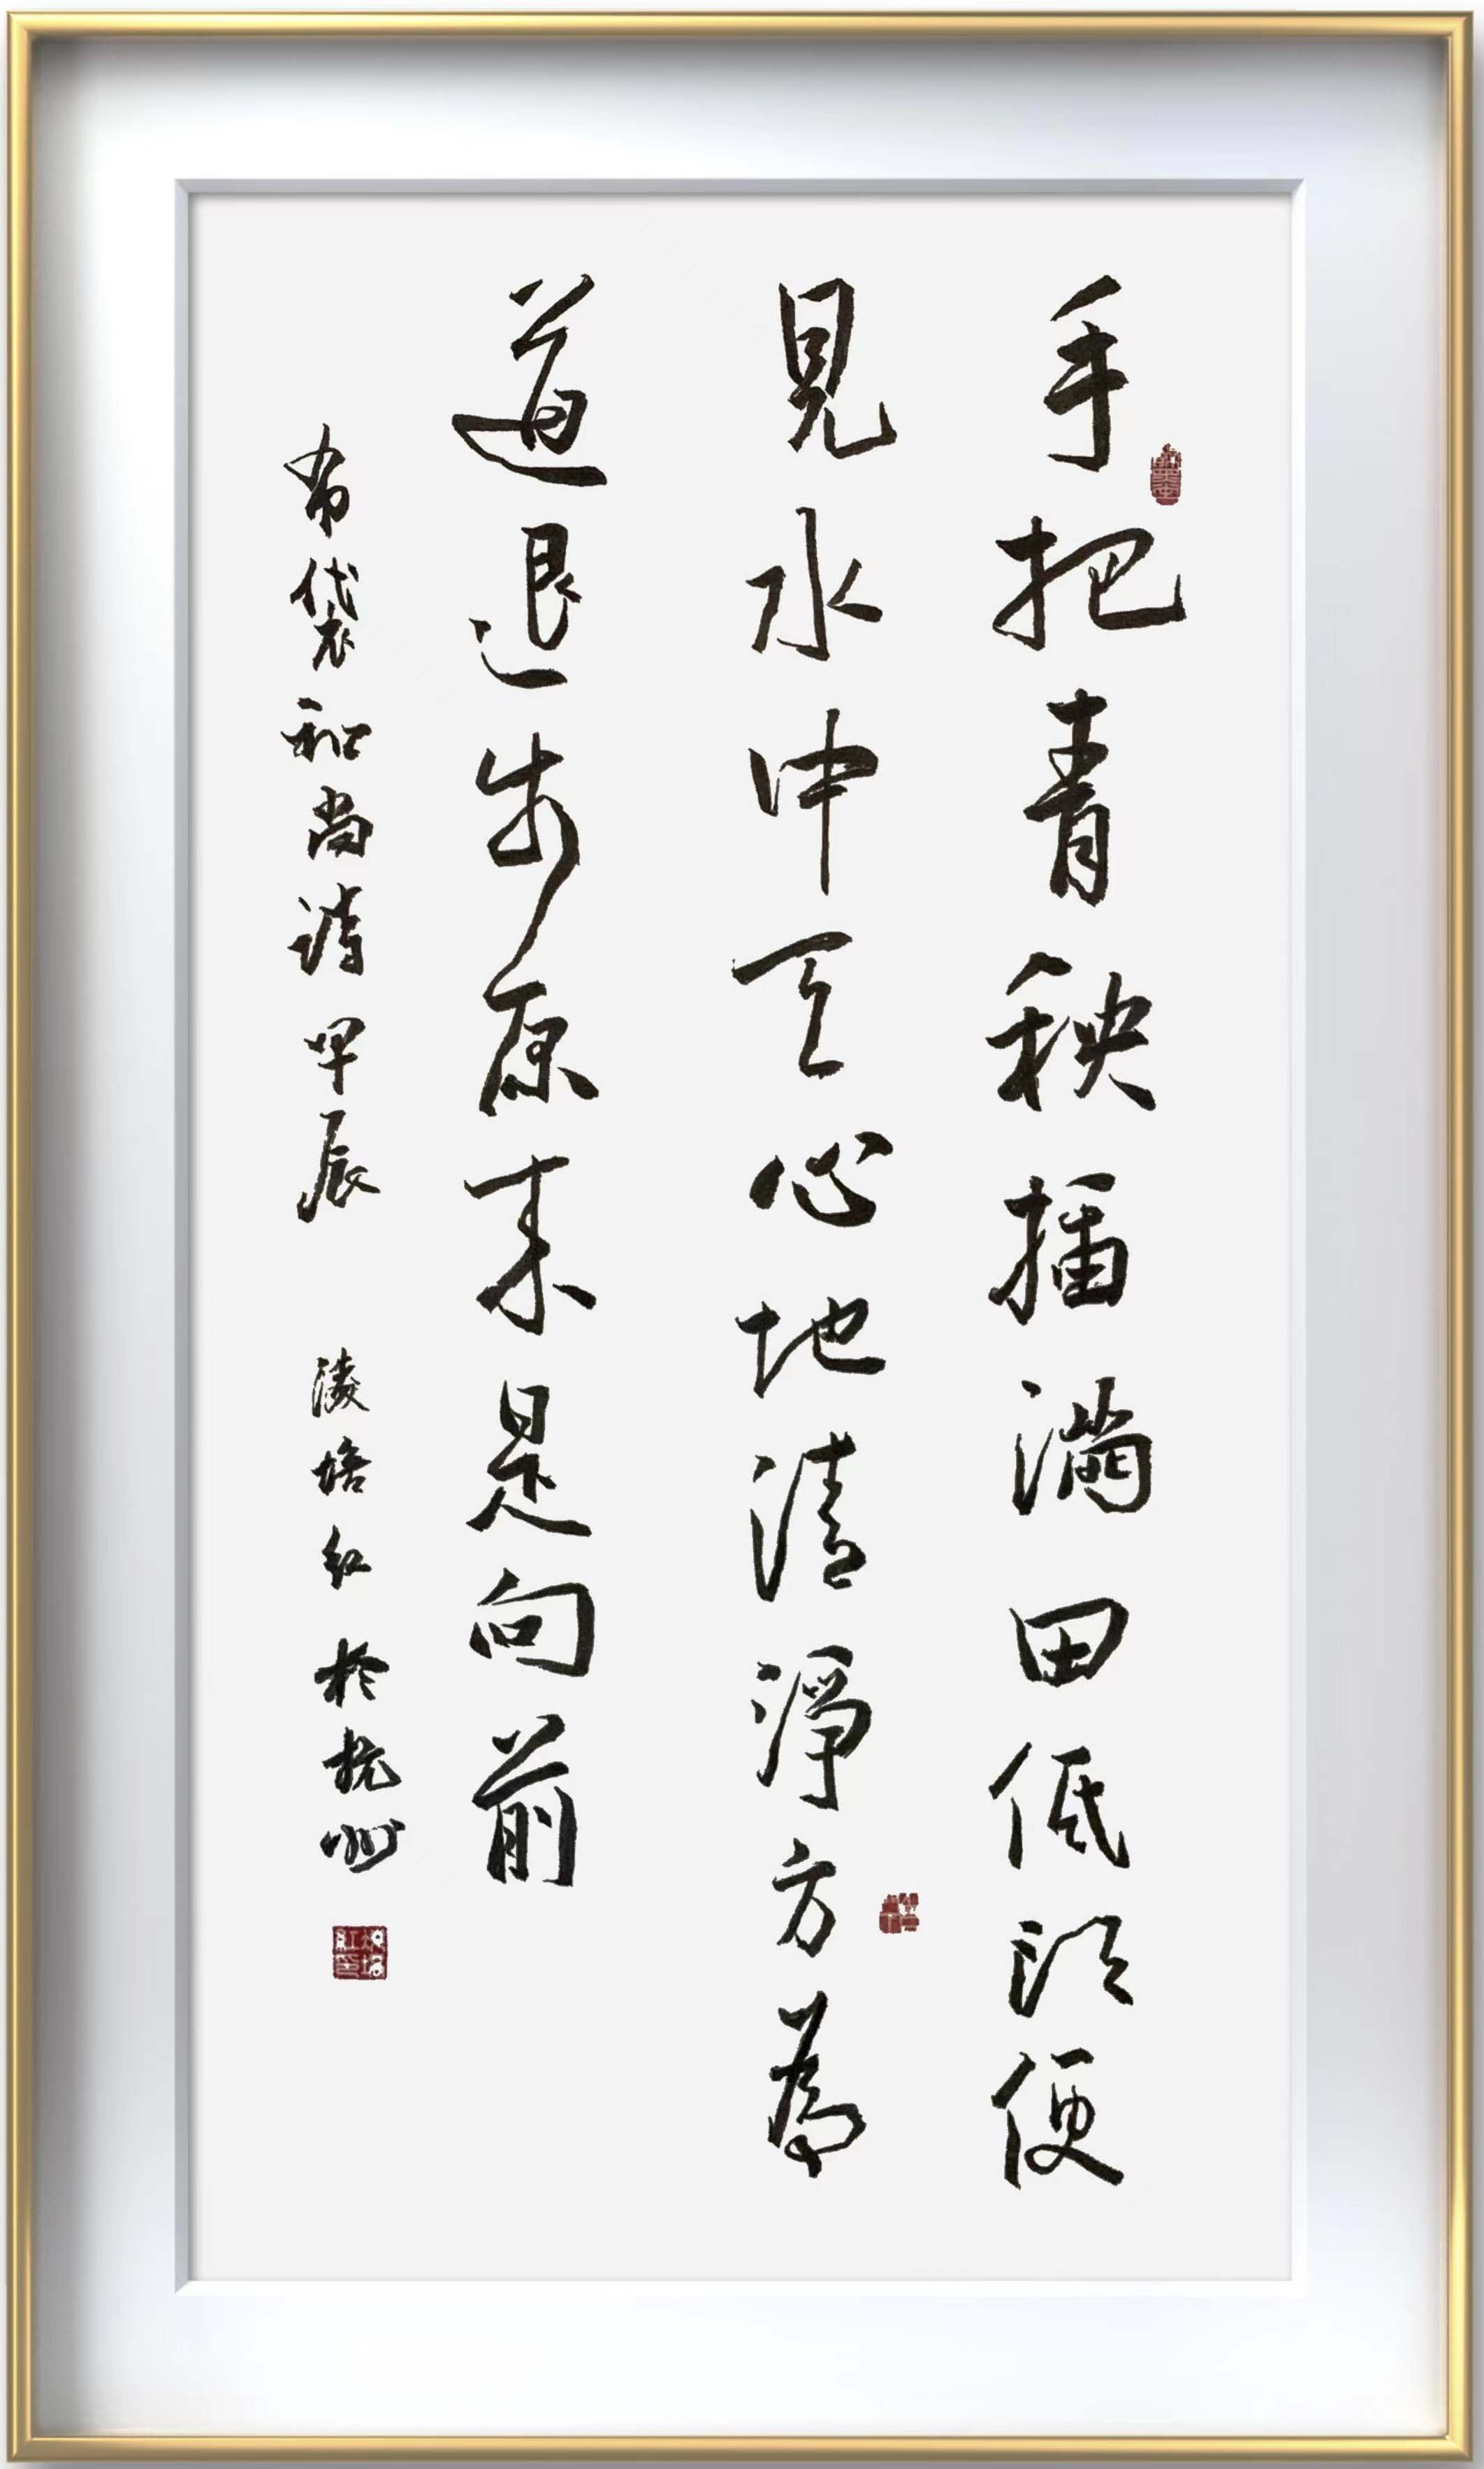 手把青秧插满田低头便
見水中天心地清淨方為
道退步原来是向前
布袋和尚诗甲辰 凌培红於杭州